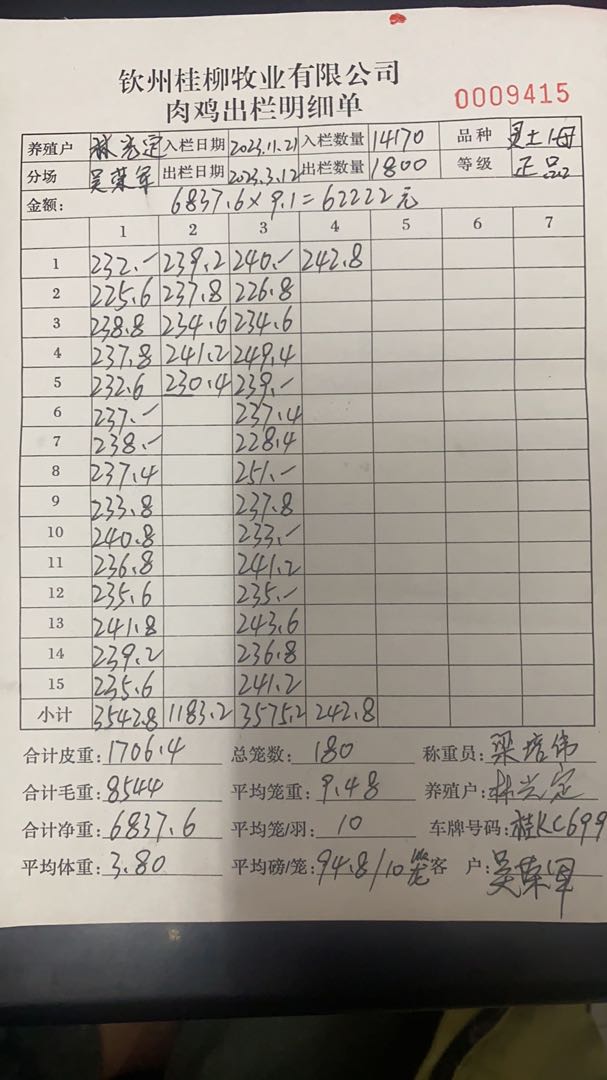 钦州桂柳牧业有限公司
肉鸡出栏明细单
0009415
养殖户 林兴定 入栏日期 2023.11.21 入栏数量 14170 品种 灵土1母
分场 吴荣军 出栏日期 2023.3.12 出栏数量 1800 等级 正品
金额: 6837.6×9.1=62222元
1 2 3 4 5 6 7
1 232.- 239.2 240.- 242.8
2 225.6 237.8 226.8
3 238.8 234.6 234.6
4 237.8 241.2 249.4
5 232.6 230.4 239.-
6 237.- 237.4
7 238.- 228.4
8 237.4 251.-
9 233.8 237.8
10 240.8 233.-
11 236.8 241.2
12 235.6 235.-
13 241.8 243.6
14 239.2 236.8
15 235.6 241.2
小计 3542.8 1183.2 3575.2 242.8
合计皮重: 1706.4 总笼数: 180 称重员: 梁培伟
合计毛重: 8544 平均笼重: 9.48 养殖户: 林兴定
合计净重: 6837.6 平均笼/羽: 10 车牌号码: 桂KC699
平均体重: 3.80 平均磅/笼: 94.8/10笼 客户: 吴荣军